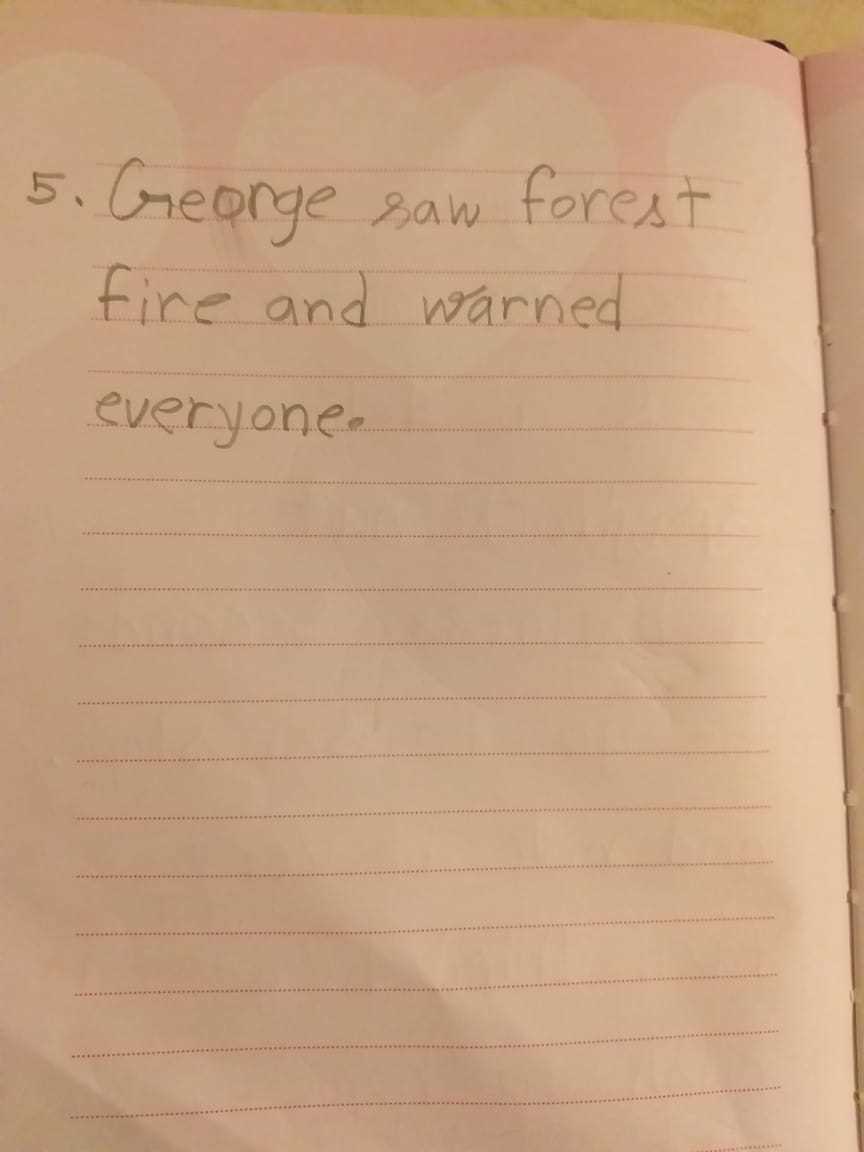 5. George saw forest
fire and warned
everyone.